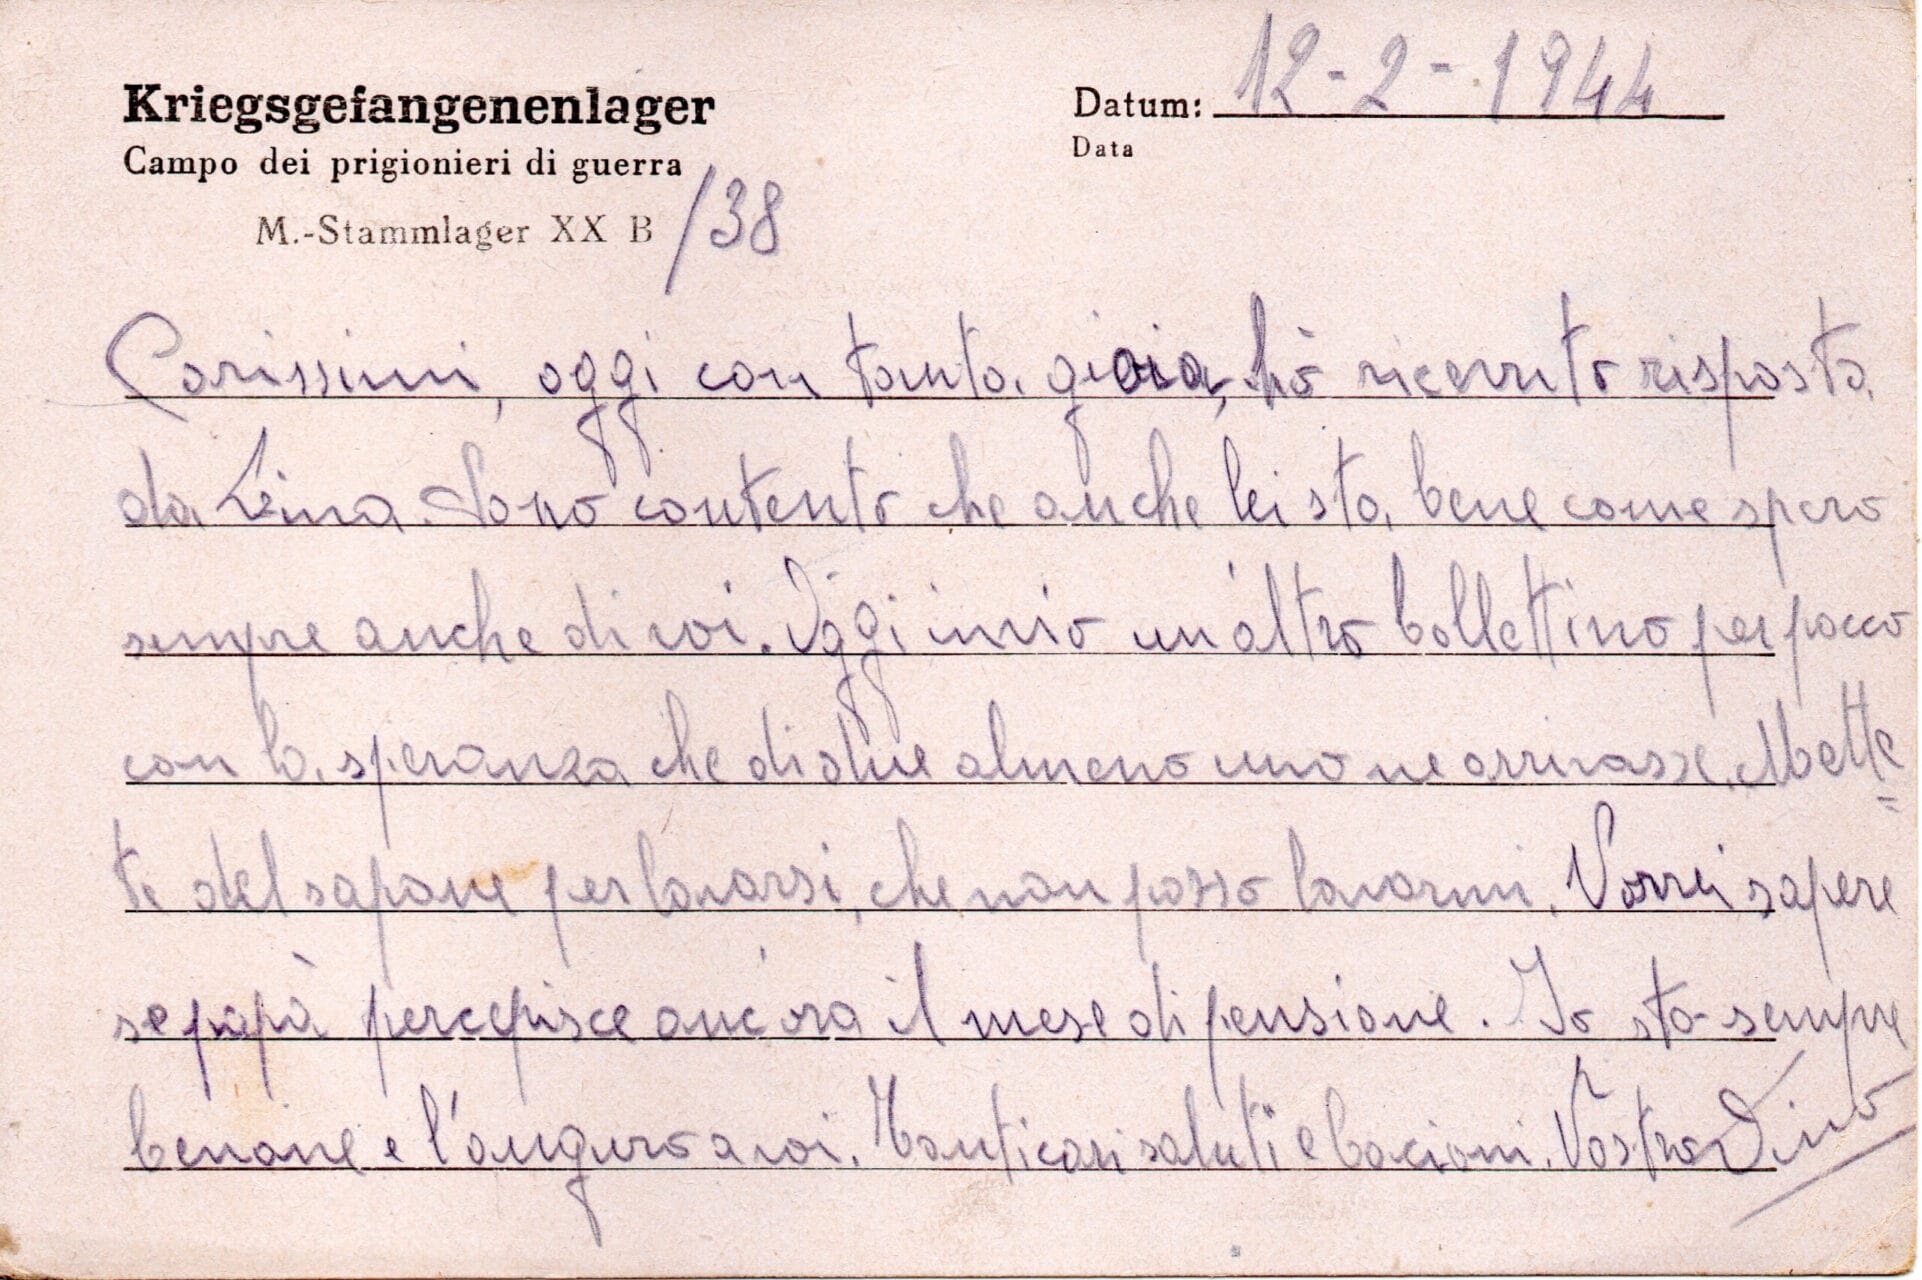 Kriegsgefangenenlager
Datum: 12-2-1944
Campo dei prigionieri di guerra
Data
M.-Stammlager XX B /38
Carissimi, oggi con tanta gioia, hò ricevuto risposta
da Lina. Sono contento che anche lei sta bene come spero
sempre anche di voi. Oggi invio un'altro bollettino per pacco
con la speranza che di due almeno uno ne arrivasse. Mette=
te del sapone per lavarsi, che non posso lavarmi. Vorrei sapere
se papà percepisce ancora il mese di pensione. Io sto sempre
benone e l'auguro a voi. Tanti cari saluti e bacioni. Vostro Dino